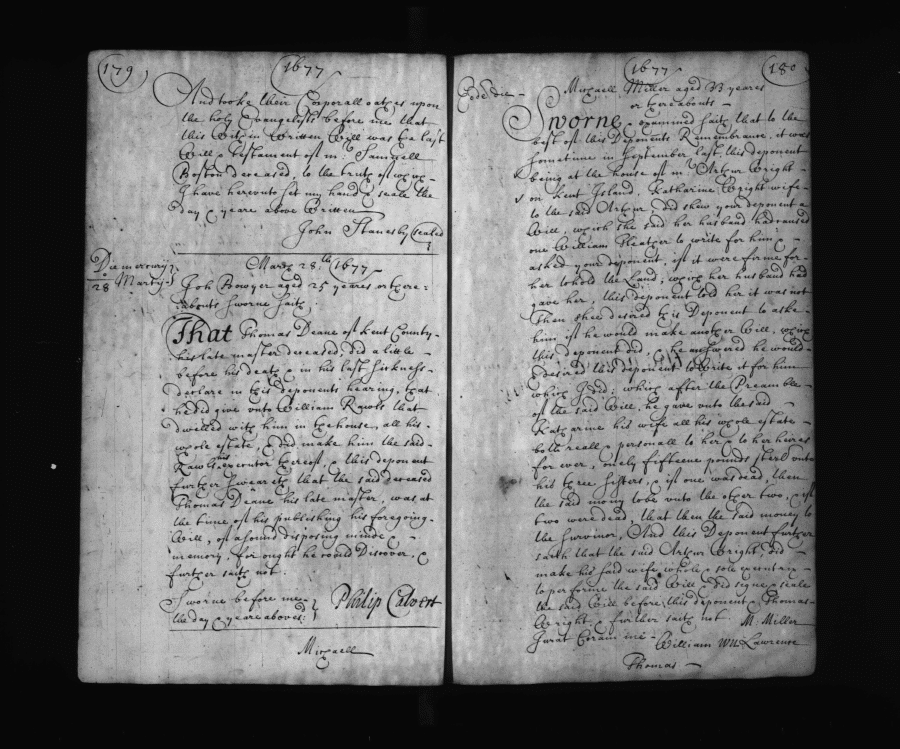 179
1677
And tooke their Corporall oathes upon
the holy Evangelist before me that
this within written Will was the last
Will & testament of mr: Samuell
Boston deceased, to the truth of wch
I have hereunto set my hand & seale the
day & yeare above written
John Stanesby sealed
Die mercury
28 Martij
March 28th 1677
Job Bowyer aged 25 yeares or there:
abouts sworne saith
That Thomas Deane of Kent County
his late master deceased, did a little
before his death & in his last sickness
declare in this deponents hearing, that
he did give unto William Rawls that
dwelled with him in the house, all his
whole estate, & did make him the said
Rawls his executor thereof, & this deponent
further sweareth that the said deceased
Thomas Deane his late master, was at
the time of his publishing his foregoing
Will, of a sound disposing minde &
memory, for ought he could Discover, &
further saith not.
Sworne before me
the day & yeare above:
Philip Calvert
Michaell
1677
180
Eodē die
Michaell Miller aged 33 yeares
or thereabouts
Sworne & examined saith that to the
best of this Deponents Remembrance, it was
sometime in September last, this deponent
being at the house of mr Arthur Wright
on Kent Island, Katharine Wright wife
to the said Arthur did show your deponent a
Will, which she said her husband had caused
one William to write for him &
asked your deponent, if it were firme for
her to hold the Land, which her husband had
gave her, this deponent told her it was not
Then shee desired this Deponent to aske
him if he would make another Will, which
this deponent did, & he answered he would
& desired this deponent to write it for him
which I did; which after the Preamble
of the said Will, he gave unto the said
Katharine his wife all his whole estate
both reall & personall to her & to her heires
for ever, onely fifteene pounds sterl unto
his three sisters, & if one was dead, then
the said mony to be unto the other two, & if
two were dead, that then the said money to
the survivor, And this Deponent further
saith that the said Arthur Wright did
make his said wife whole & sole executrix
to performe the said Will & did signe & seale
the said Will before this deponent & Thomas
Wright. & further saith not. M: Miller
Jurat Coram me William Wm Lawrence
Thomas